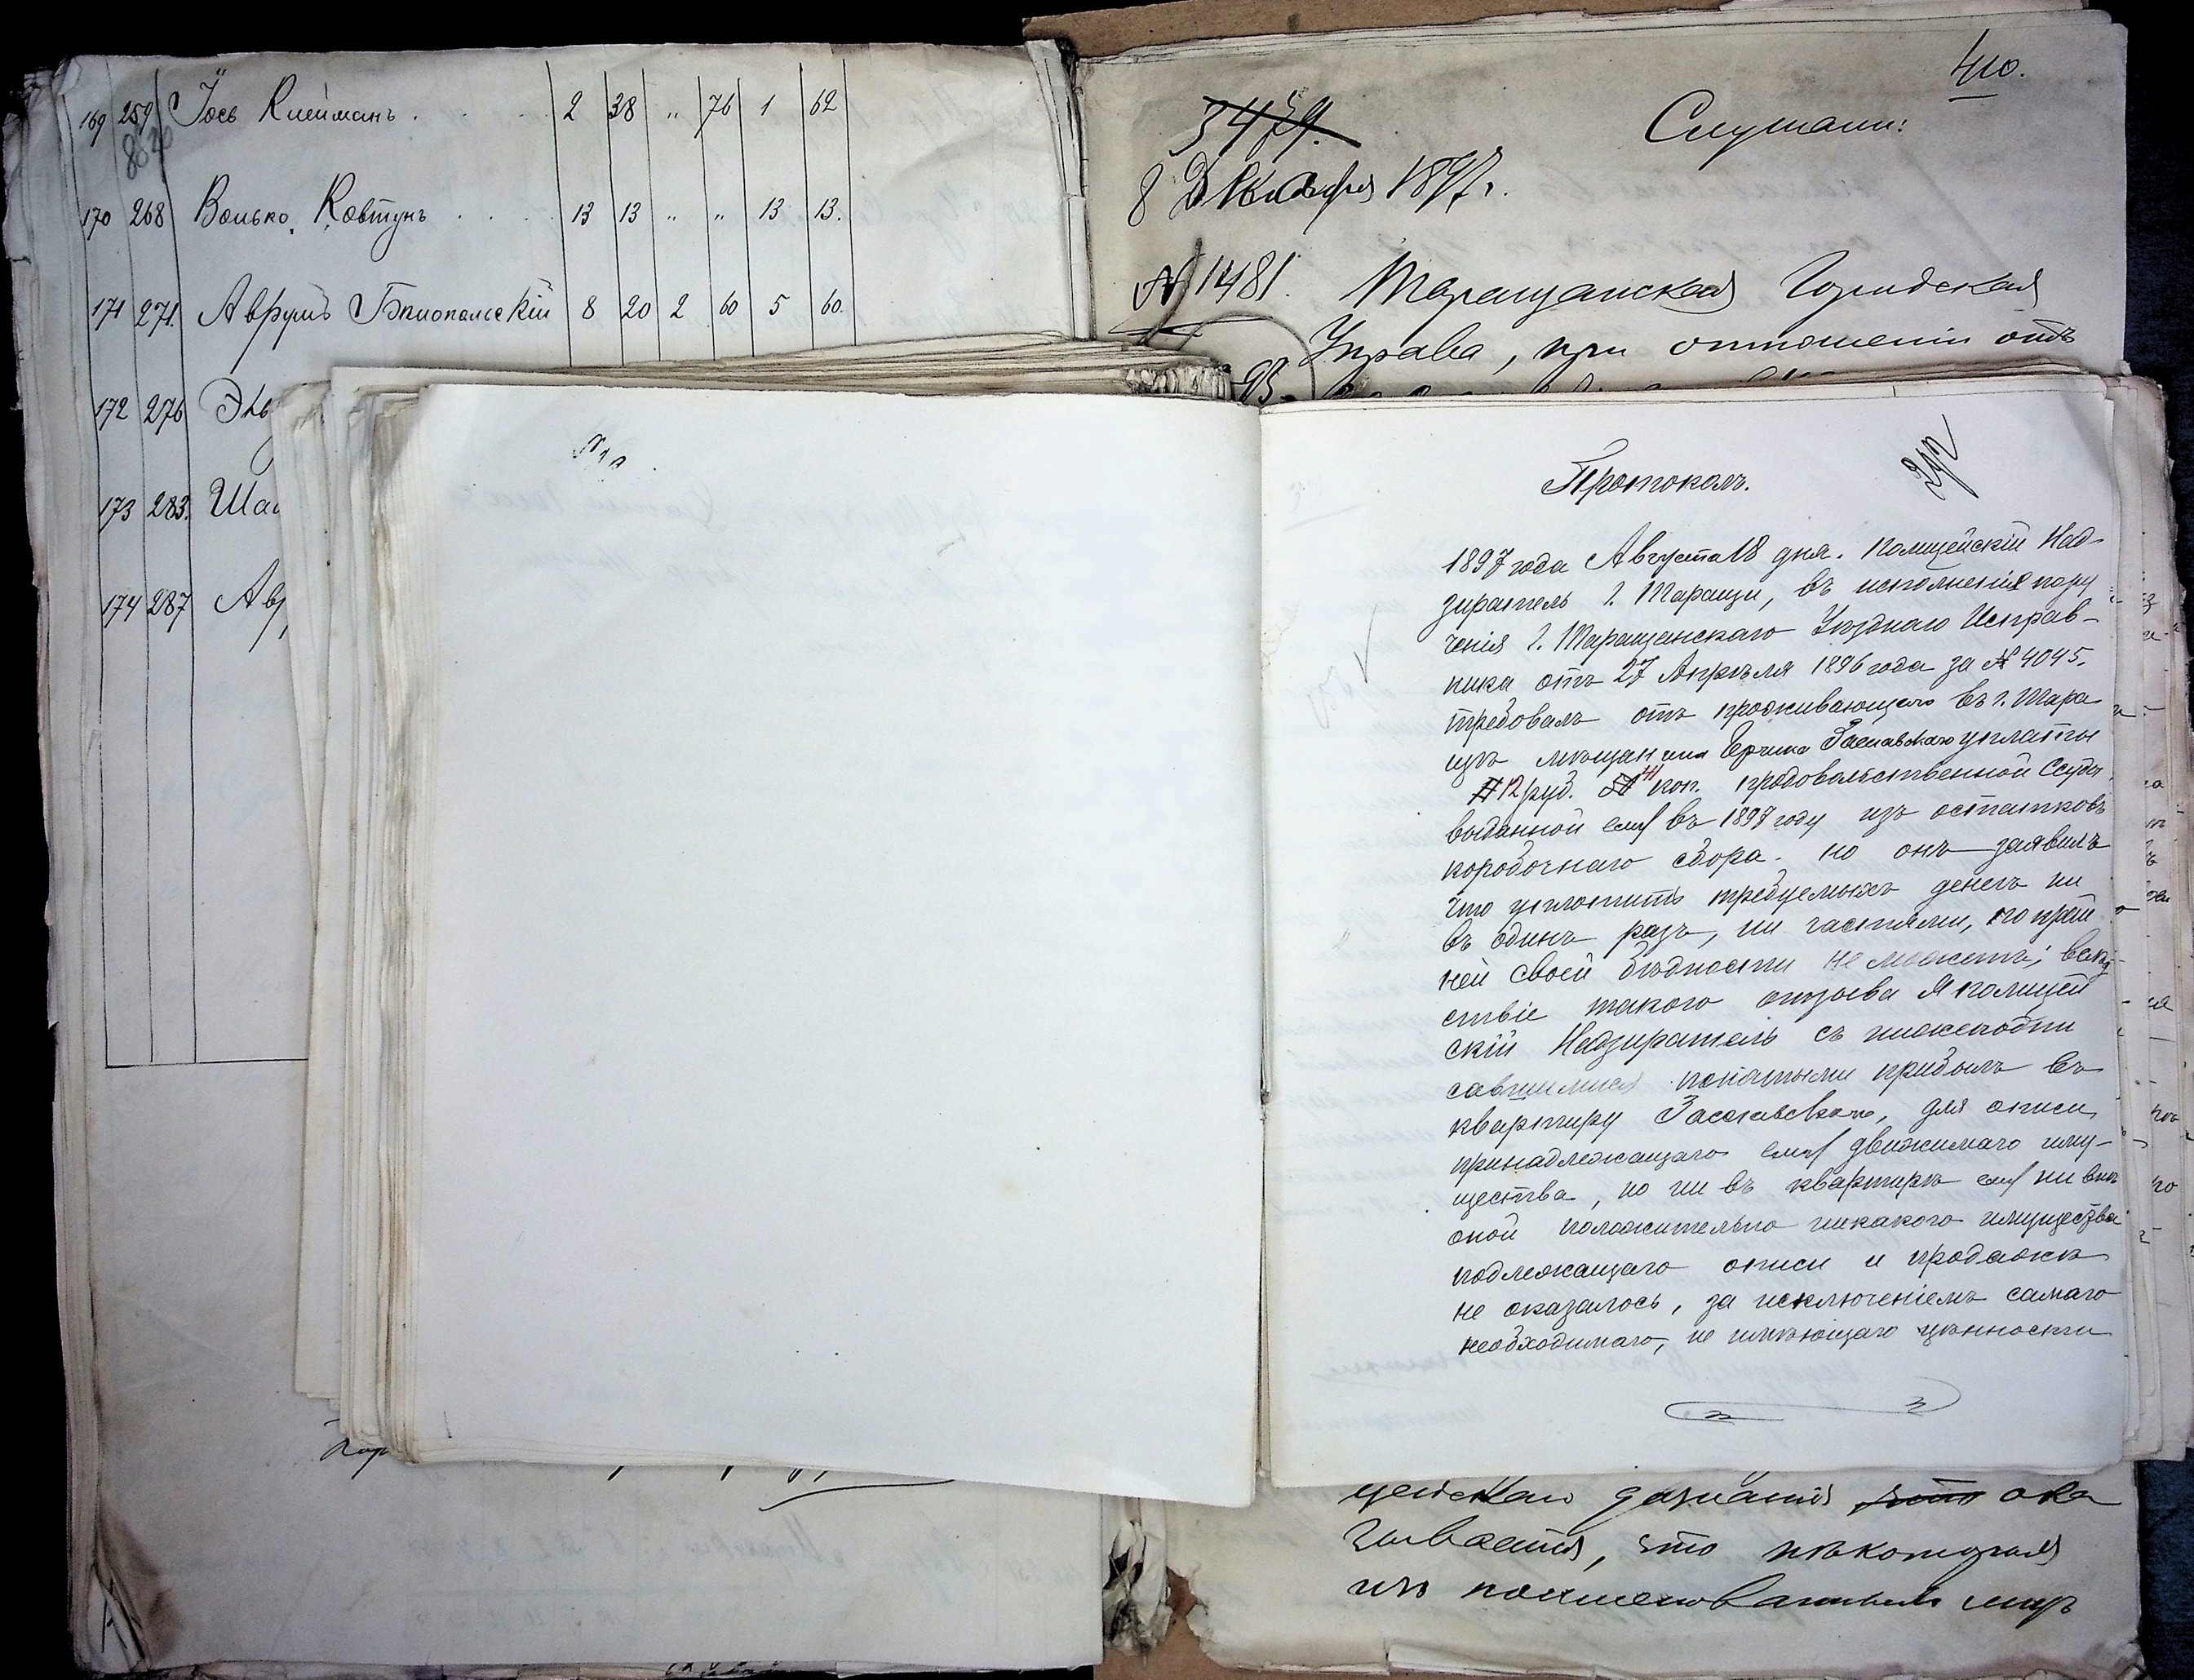 169 259 Іось Клейманъ . . . 2 38 „ 76 1 62
170 268 Волько Ковтунъ . . . 13 13 „ „ 13 13.
171 271. Аврумъ Бялопольскій 8 20 2 60 5 60.
172 276
173 283.
174 287
410.
3479.
Слушали:
8 Декабря 1897 г.
№ 1481. Таращанская Городская
Управа, при отношеніи отъ
Протоколъ.
1897 года Августа 18 дня. Полицейскій Над-
зиратель г. Таращи, въ исполненіе пору
ченія г. Таращанскаго Уѣзднаго Исправ-
ника отъ 27 Апрѣля 1896 года за № 4045.
требовалъ отъ проживающаго въ г. Тара
щѣ мѣщанина Заславскаго уплаты
12 руб. 41 коп. продовольственной Ссуды
выданной ему въ 1897 году изъ остатковъ
коробочнаго сбора. но онъ заявилъ
что уплотить требуемыхъ денегъ ни
въ одинъ разъ, ни частями, по край
ней своей бѣдности не можетъ; вслѣд-
ствіе такого отзыва Я полицей
скій Надзиратель съ нижеподпи
савшимися понятыми прибылъ въ
квартиру Заславскаго, для описи
принадлежащаго ему движимаго иму-
щества, но ни въ квартирѣ ему ни внѣ
оной положительно никакого имущества
подлежащаго описи и продажѣ
не оказалось, за исключеніемъ самаго
необходимаго, не имѣющаго цѣнности
цейскаго дознанія что ока
зывается, что нѣкоторыя
изъ поименованныхъ лицъ